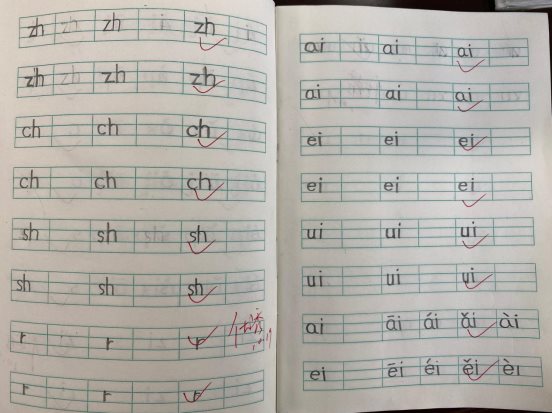 zh zh zh zh
zh zh zh zh
ch ch ch
ch ch ch
sh sh sh
sh sh sh
r r r
r r r
ai ai ai
ai ai ai
ei ei ei
ei ei ei
ui ui ui
ui ui ui
ai āi ái ǎi ài
ei ēi éi ěi èi